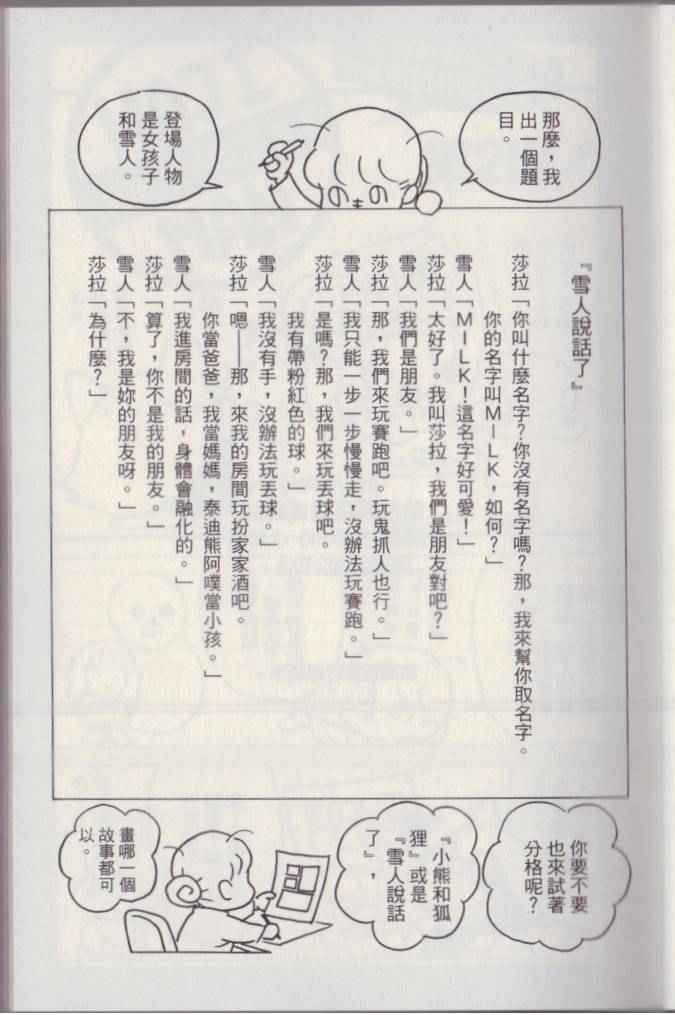 那麼，我
出一個題
目。
登場人物
是女孩子
和雪人。
『雪人說話了』
莎拉「你叫什麼名字？你沒有名字嗎？那，我來幫你取名字。
你的名字叫ＭＩＬＫ，如何？」
雪人「ＭＩＬＫ！這名字好可愛！」
莎拉「太好了。我叫莎拉，我們是朋友對吧？」
雪人「我們是朋友。」
莎拉「那，我們來玩賽跑吧。玩鬼抓人也行。」
雪人「我只能一步一步慢慢走，沒辦法玩賽跑。」
莎拉「是嗎？那，我們來玩丟球吧。
我有帶粉紅色的球。」
雪人「我沒有手，沒辦法玩丟球。」
莎拉「嗯——那，來我的房間玩扮家家酒吧。
你當爸爸，我當媽媽，泰迪熊阿噗當小孩。」
雪人「我進房間的話，身體會融化的。」
莎拉「算了，你不是我的朋友。」
雪人「不，我是妳的朋友呀。」
莎拉「為什麼？」
你要不要
也來試著
分格呢？
『小熊和狐
狸』或是
『雪人說話
了』，
畫哪一個
故事都可
以。